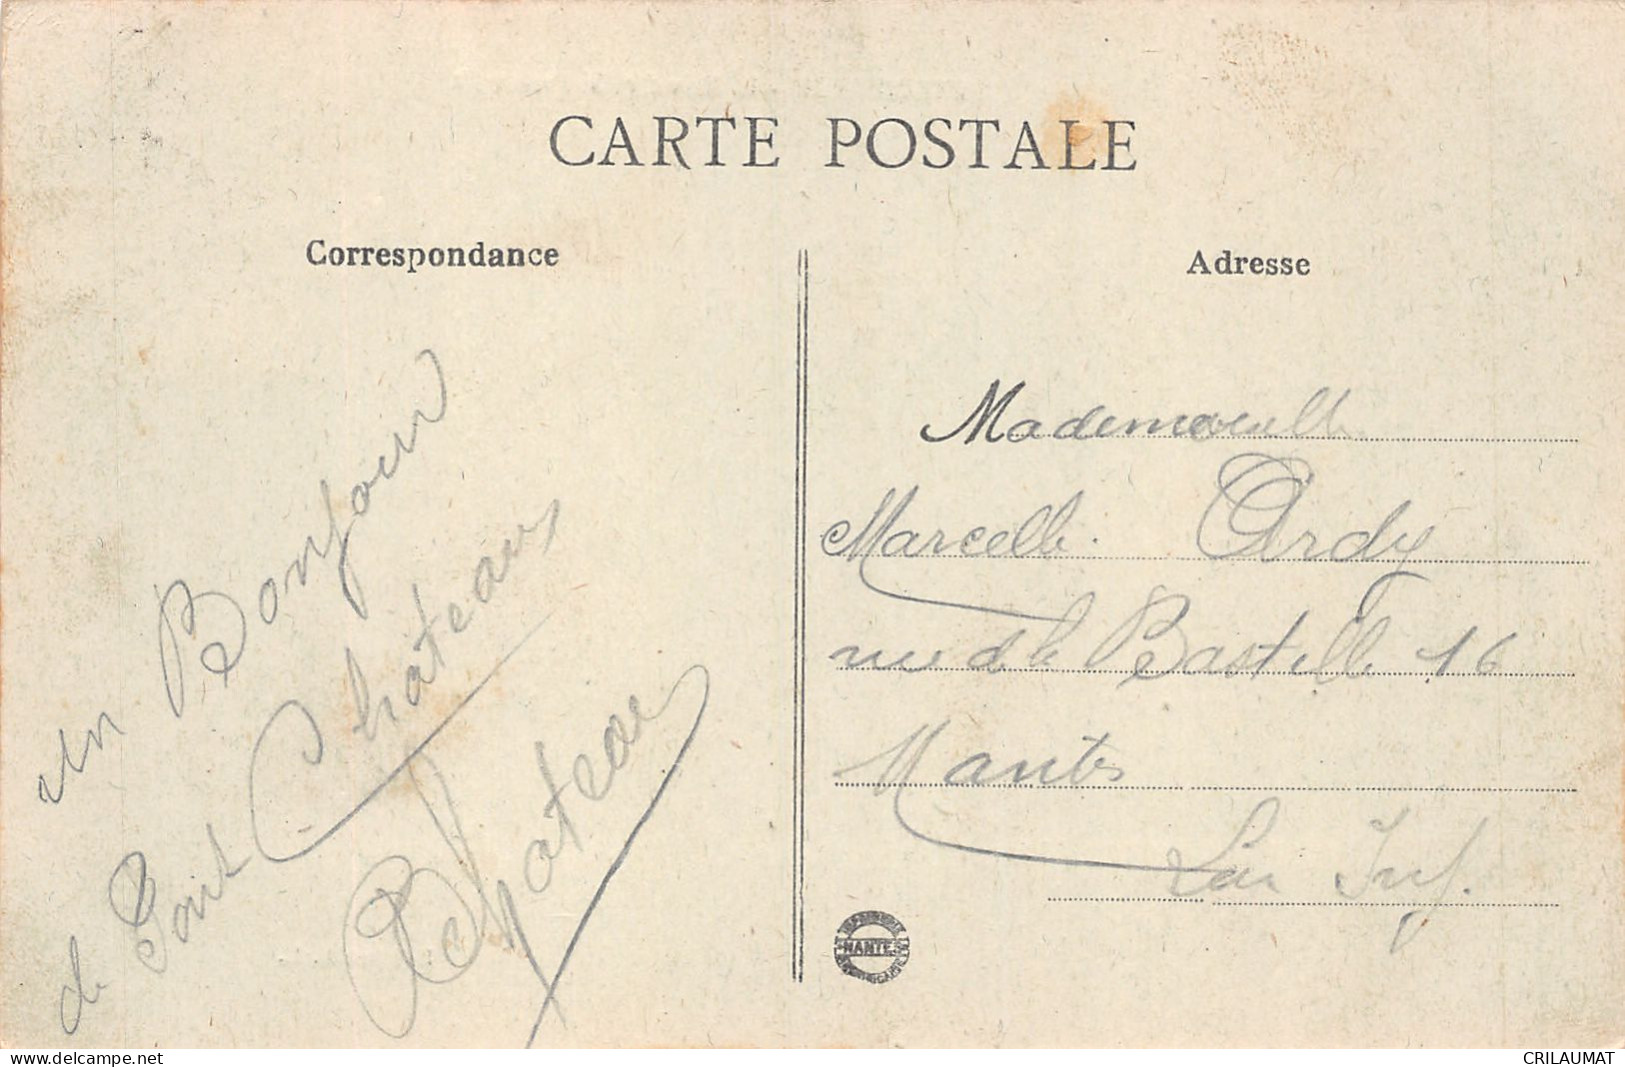 CARTE POSTALE
Correspondance
Adresse
un Bonjour
de Pont Chateau
Mademoiselle
Marcelle Ardy
rue de la Bastille 16
Nantes
Loir Inf.
NANTES
delcampe.net
CRILAUMAT